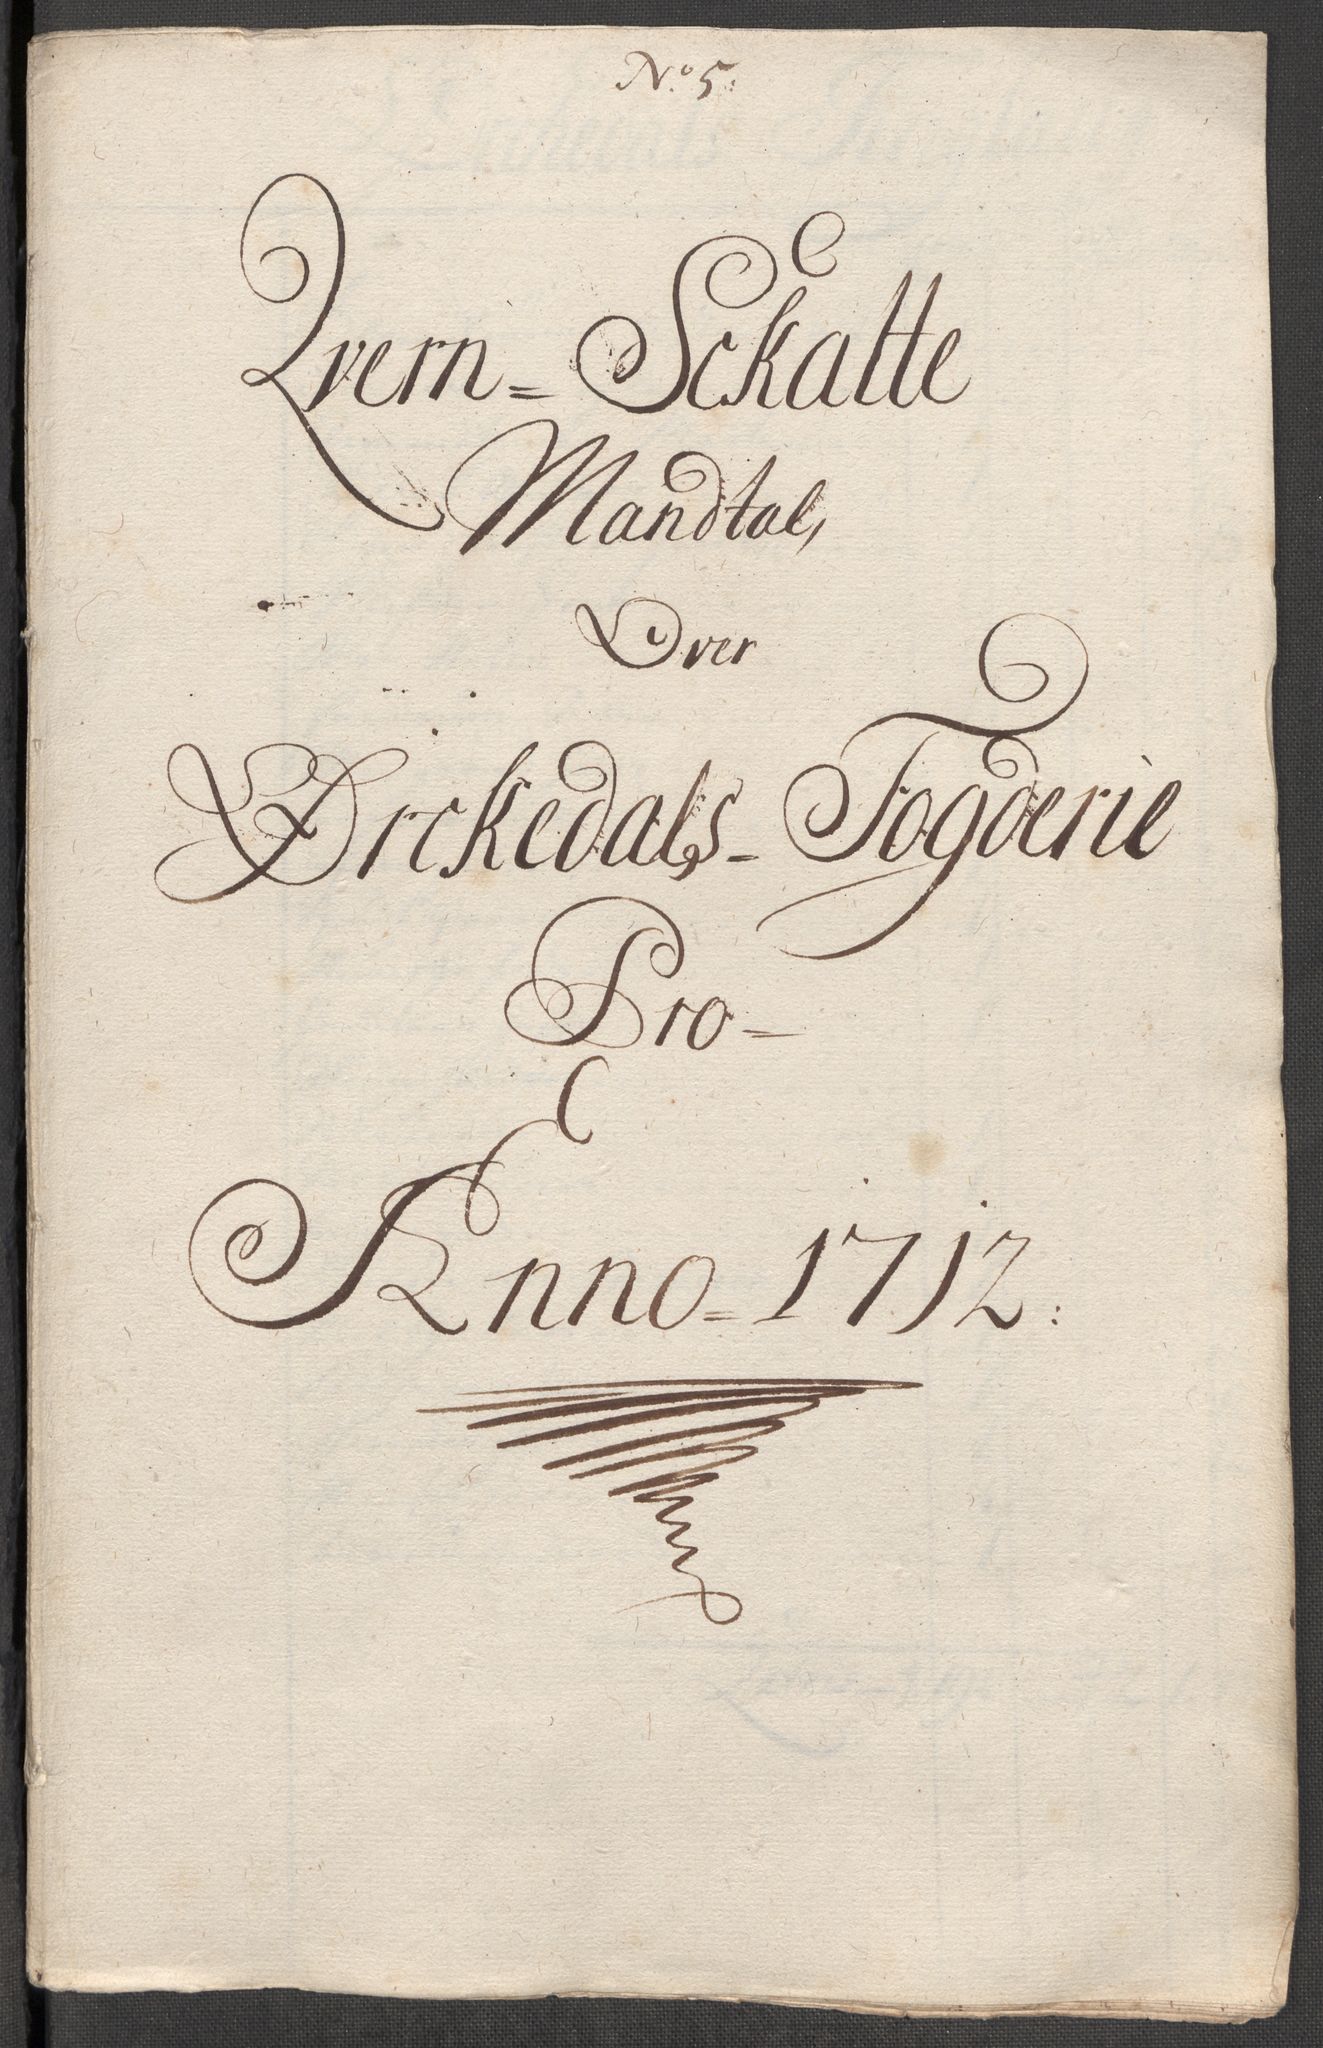 No 5:
Qvern= Schatte
Mandtal,
Over
Ørckedals- Fogderie
Pro-
Anno= 1712: